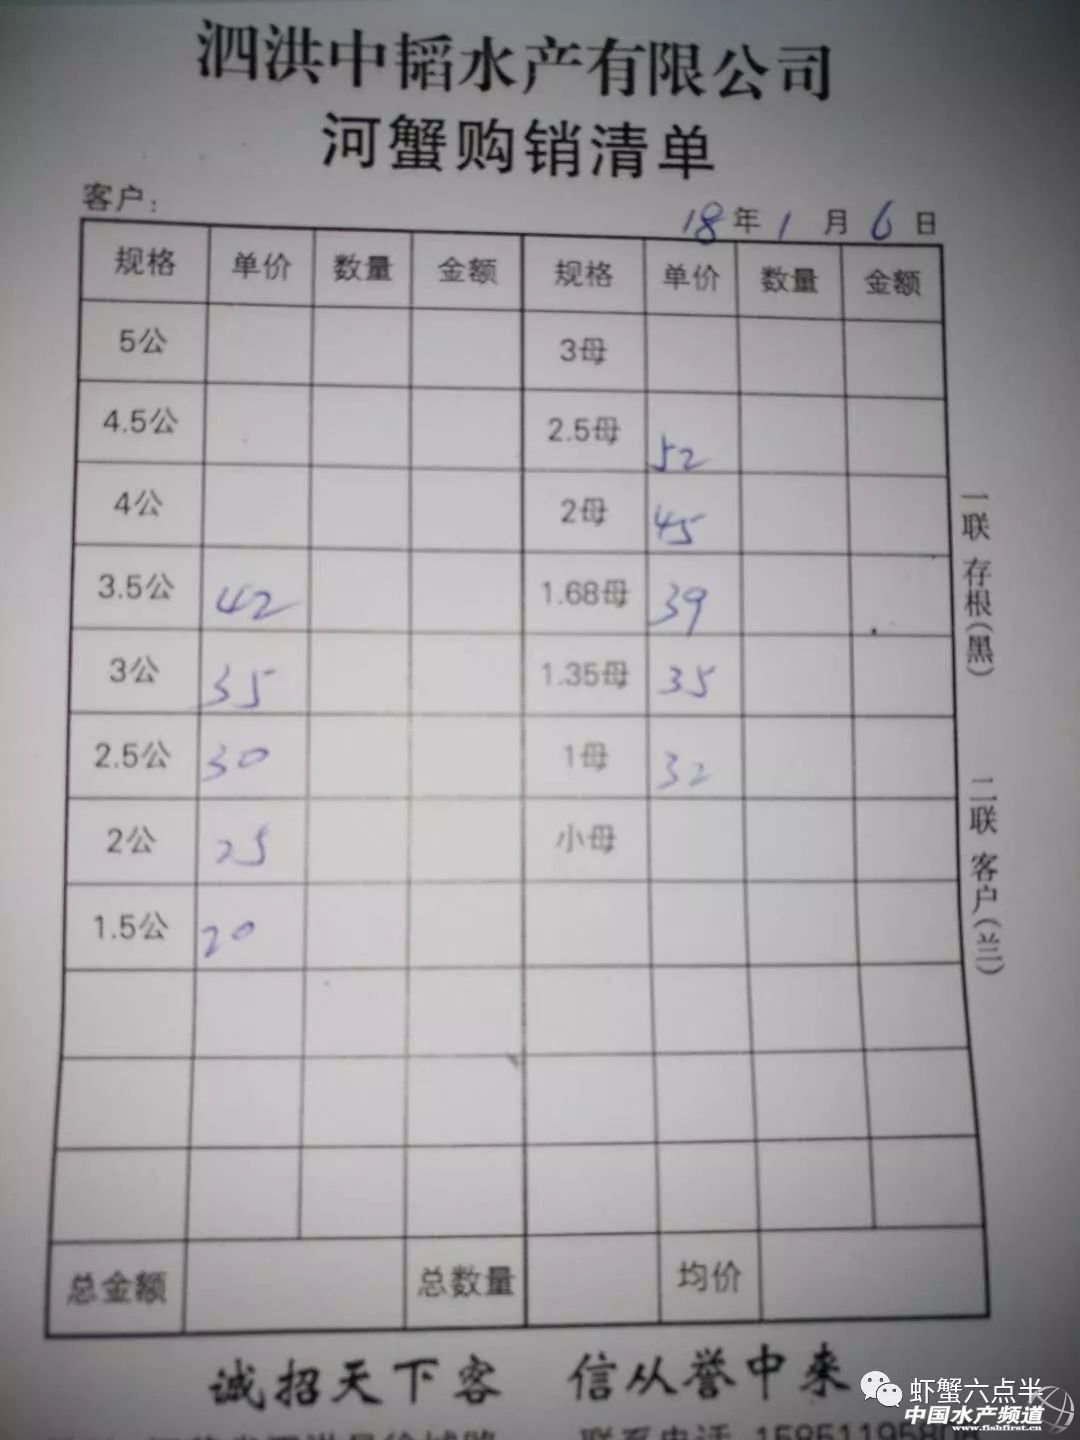 泗洪中韬水产有限公司
河蟹购销清单
客户：
18年1月6日
规格 单价 数量 金额 规格 单价 数量 金额
5公 3母
4.5公 2.5母 52
4公 2母 45
3.5公 42 1.68母 39
3公 35 1.35母 35
2.5公 30 1母 32
2公 25 小母
1.5公 20
总金额 总数量 均价
一联 存根(黑)
二联 客户(兰)
诚招天下客 信从誉中来
虾蟹六点半
中国水产频道
www.fishfirst.cn
联系电话